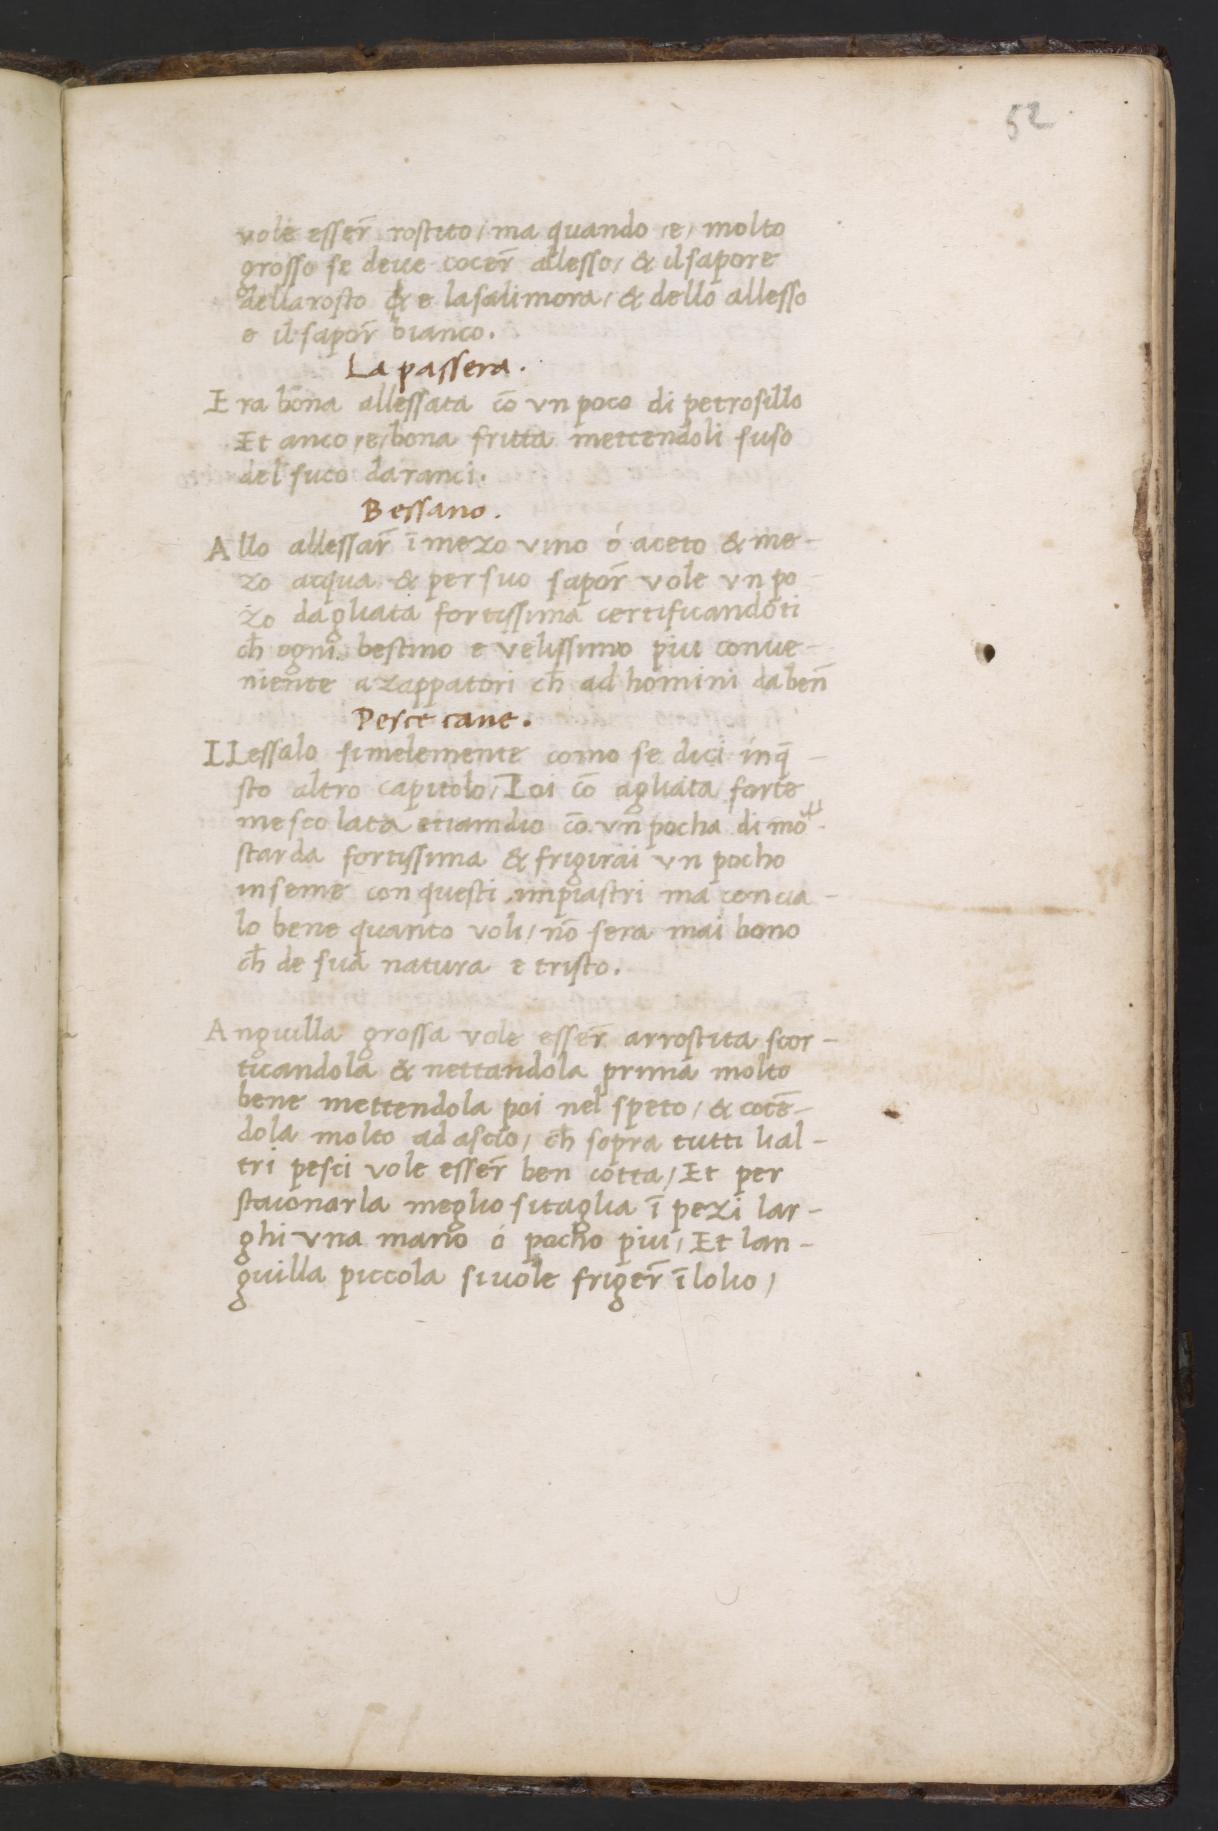 52
vole esser̄ rostito / ma quando / e / molto
grosso se deve cocer̄ allesso / & il sapore
dellarosto & e la salimora / & dello allesso
e il sapor̄ bianco.
La passera.
Era bona allessata cō vn poco di petrosillo
Et anco / e / bona fritta mettendoli suso
del suco daranci.
Bessano.
Allo allessar̄ ī mezo vino ó aceto & me-
zo acqua & per suo sapor̄ vole vn po
zo dagliata fortissima certificandoti
ch̄ ogni bestino e velissimo piu conve-
niente a zappatori ch̄ ad homini da ben̄
Pesce cane.
ILessalo simelemente como se dici inq̄-
sto altro capitolo / Ioi cō agliata forte
mescolata etiamdio cō vn pocha di mo-
starda fortissima & frigirai vn pocho
inseme con questi impiastri ma concia-
lo bene quanto voli / nō sera mai bono
ch̄ de sua natura e tristo.
Anguilla grossa vole esser̄ arrostita scor-
ticandola & nettandola prima molto
bene mettendola poi nel speto / & cocē-
dola molto ad ascio / ch̄ sopra tutti lial-
tri pesci vole esser̄ ben cotta / Et per
staionarla meglio si taglia ī pezi lar-
ghi vna mano ó pocho piu / Et lan-
guilla piccola si vole friger̄ ī lolio /